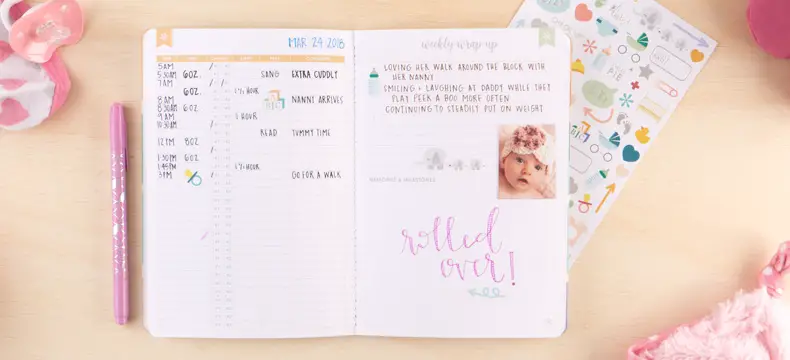 MAR 24 2018
5AM
5:30AM 6OZ. SANG EXTRA CUDDLY
7AM
6OZ. 1½ HOUR
8AM NANNY ARRIVES
8:30AM 6OZ.
9AM 1 HOUR
10:30AM
READ TUMMY TIME
12PM 8OZ.
1:30PM 6OZ.
1:45PM 1½ HOUR
3PM GO FOR A WALK
weekly wrap-up
LOVING HER WALK AROUND THE BLOCK WITH
HER NANNY
SMILING + LAUGHING AT DADDY WHILE THEY
PLAY PEEK A BOO MORE OFTEN
CONTINUING TO STEADILY PUT ON WEIGHT
MOMENTS & MILESTONES
rolled
over!
PIE